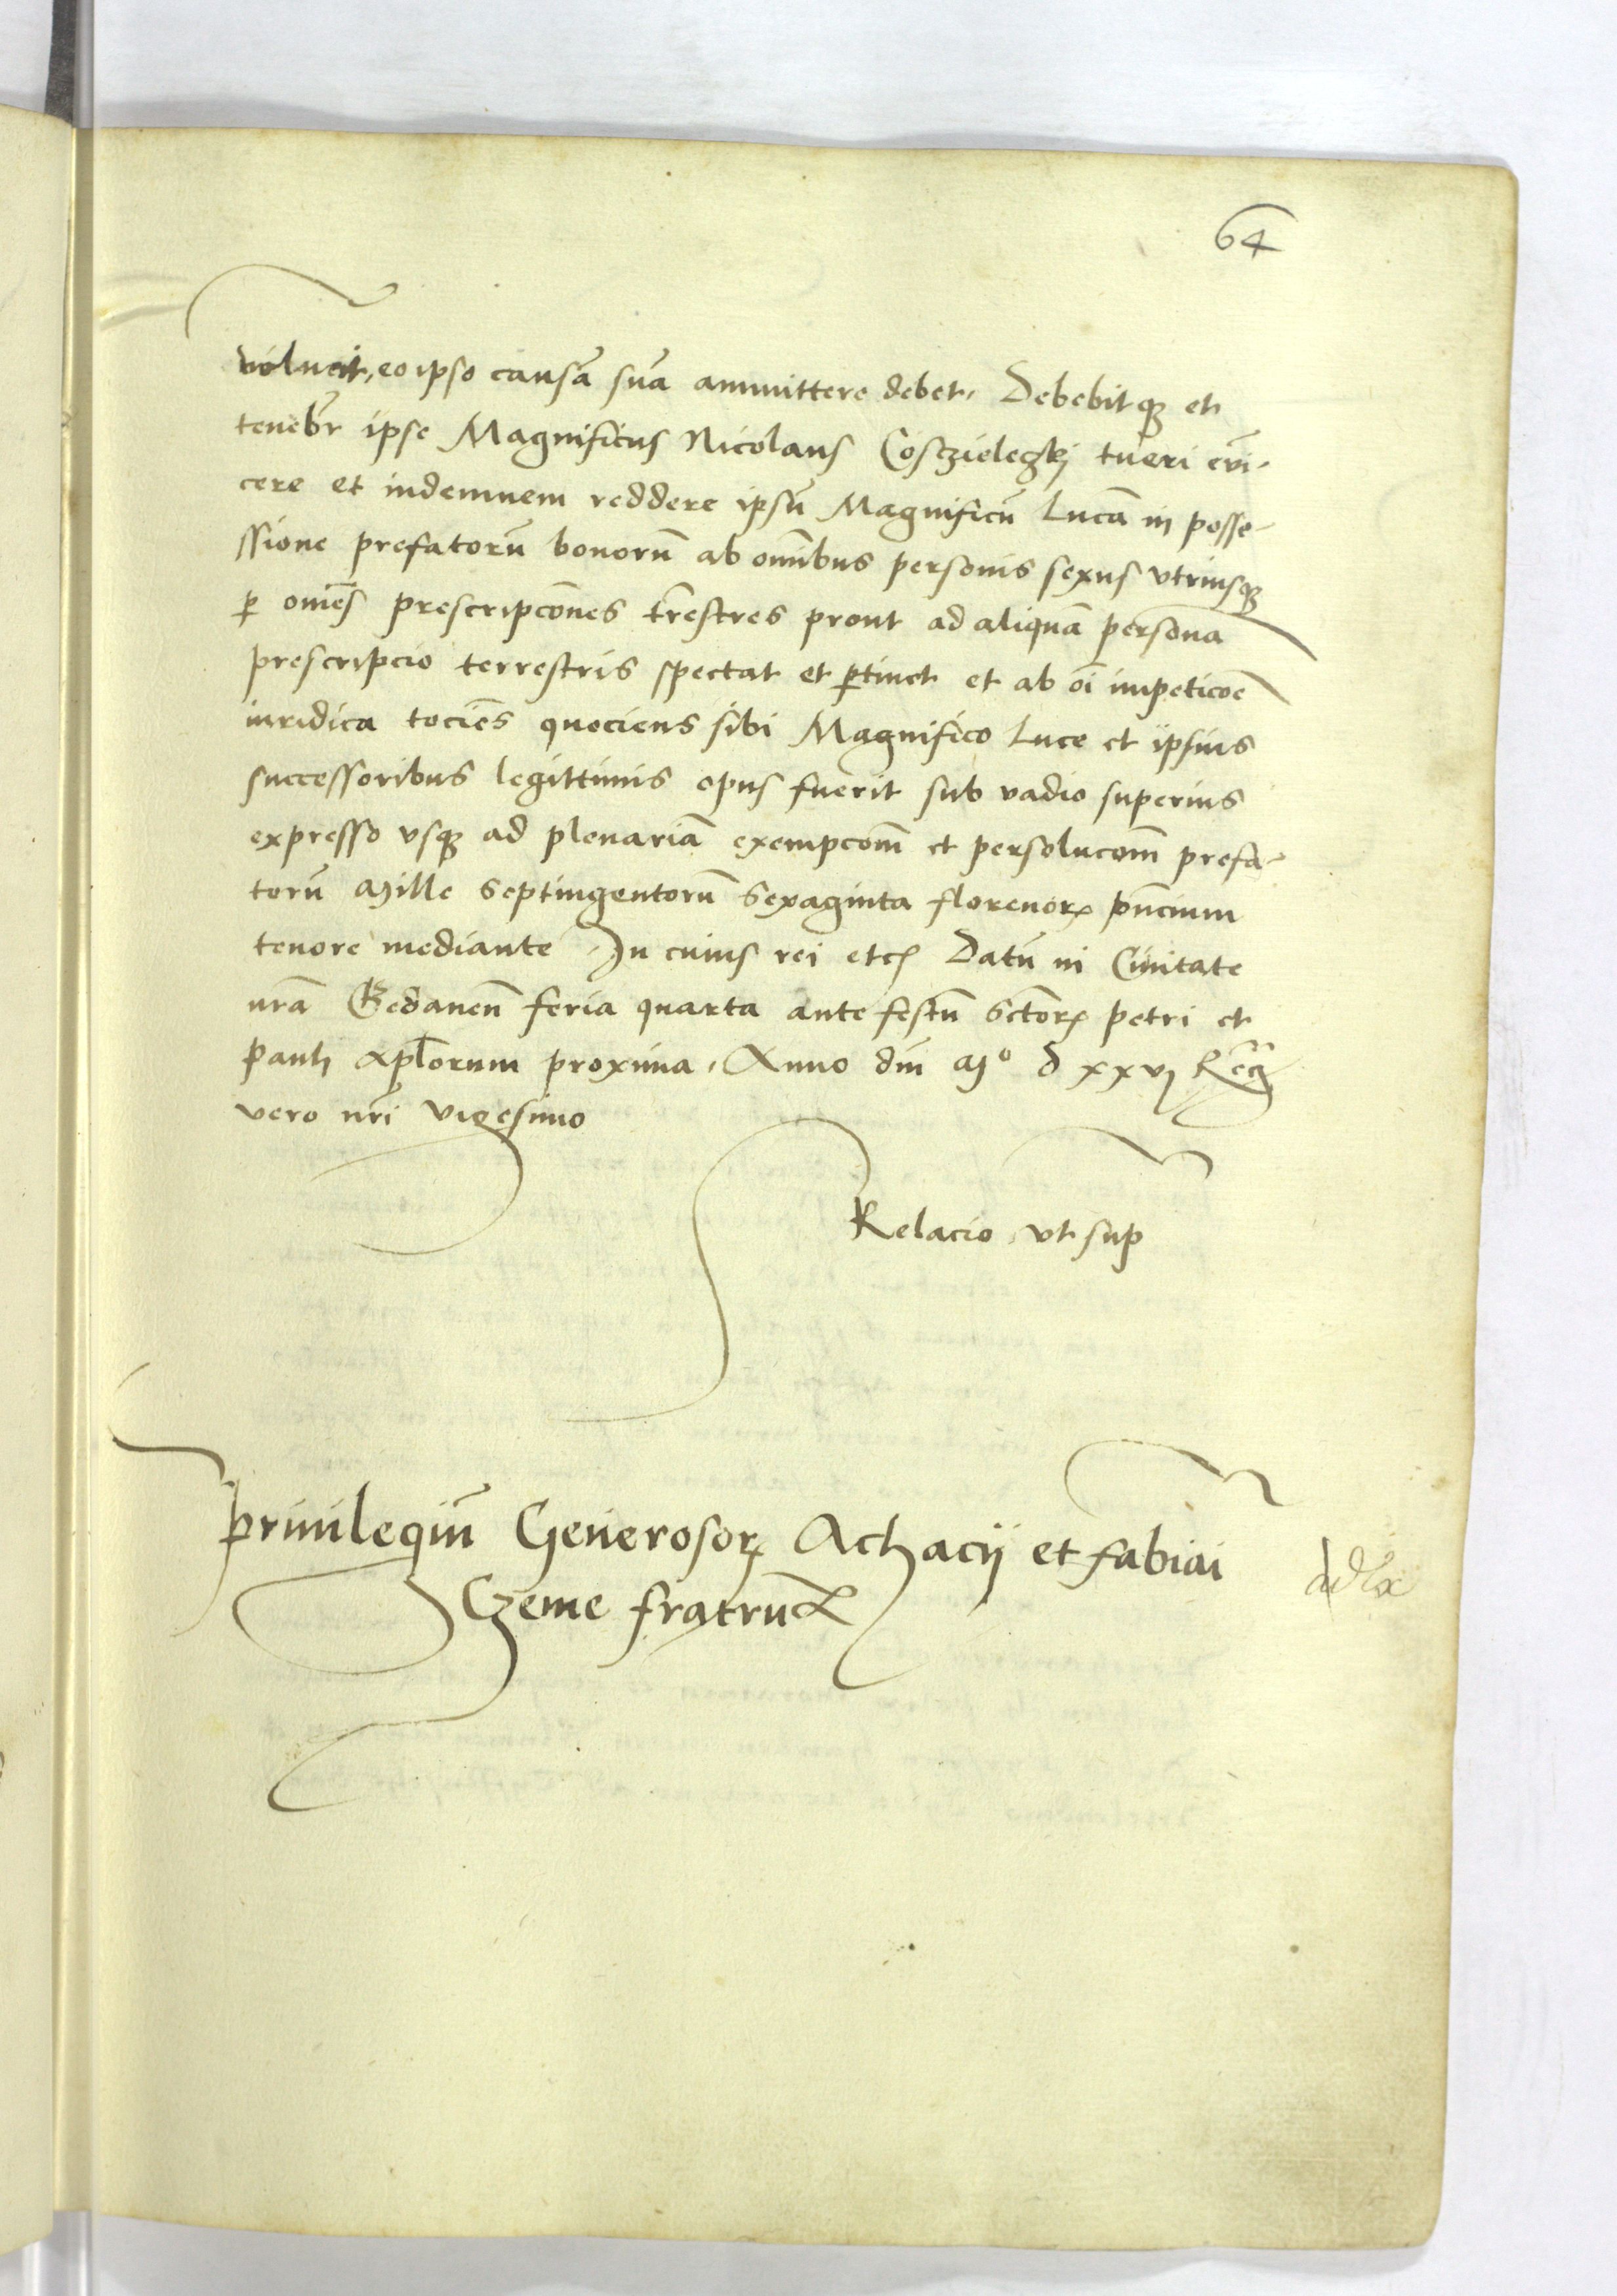 64
voluerit, eo ipso causā suā ammittere debet. Debebitqꝫ et
tenebr̄ ipse Magnificus Nicolaus Cosczielegkj tueri eūi-
cere et indemnem reddere ipsū Magnificū Lucā in posse-
ssione prefatorū bonorū ab om̄ibus personis sexus vtriusqꝫ
ꝑ om̄es prescripcōnes tr̄estres prout ad aliquā personā
prescripcio terrestris spectat et ꝑtinet et ab oī impeticōe
iuridica tociēs quociens sibi Magnifico Luce et ipsius
successoribus legittimis opus fuerit sub vadio superius
expresso vsqꝫ ad plenariā exempcōm̄ et persolucōm̄ prefa-
torū Mille Septingentorū Sexaginta florenorꝝ pn̄cium
tenore mediante In cuius rei etcꝭ Datū in Ciuitate
nr̄a Gedaneñ feria quarta ante festū Sctōrꝝ Petri et
Pauli Apl̄orum proxima, Anno dn̄i Mº d xxvj Regꝭ
vero nr̄i vigesimo
Relacio vt sup
Priuilegiū Generosorꝝ Achacij et Fabiai
Czeme fratrū